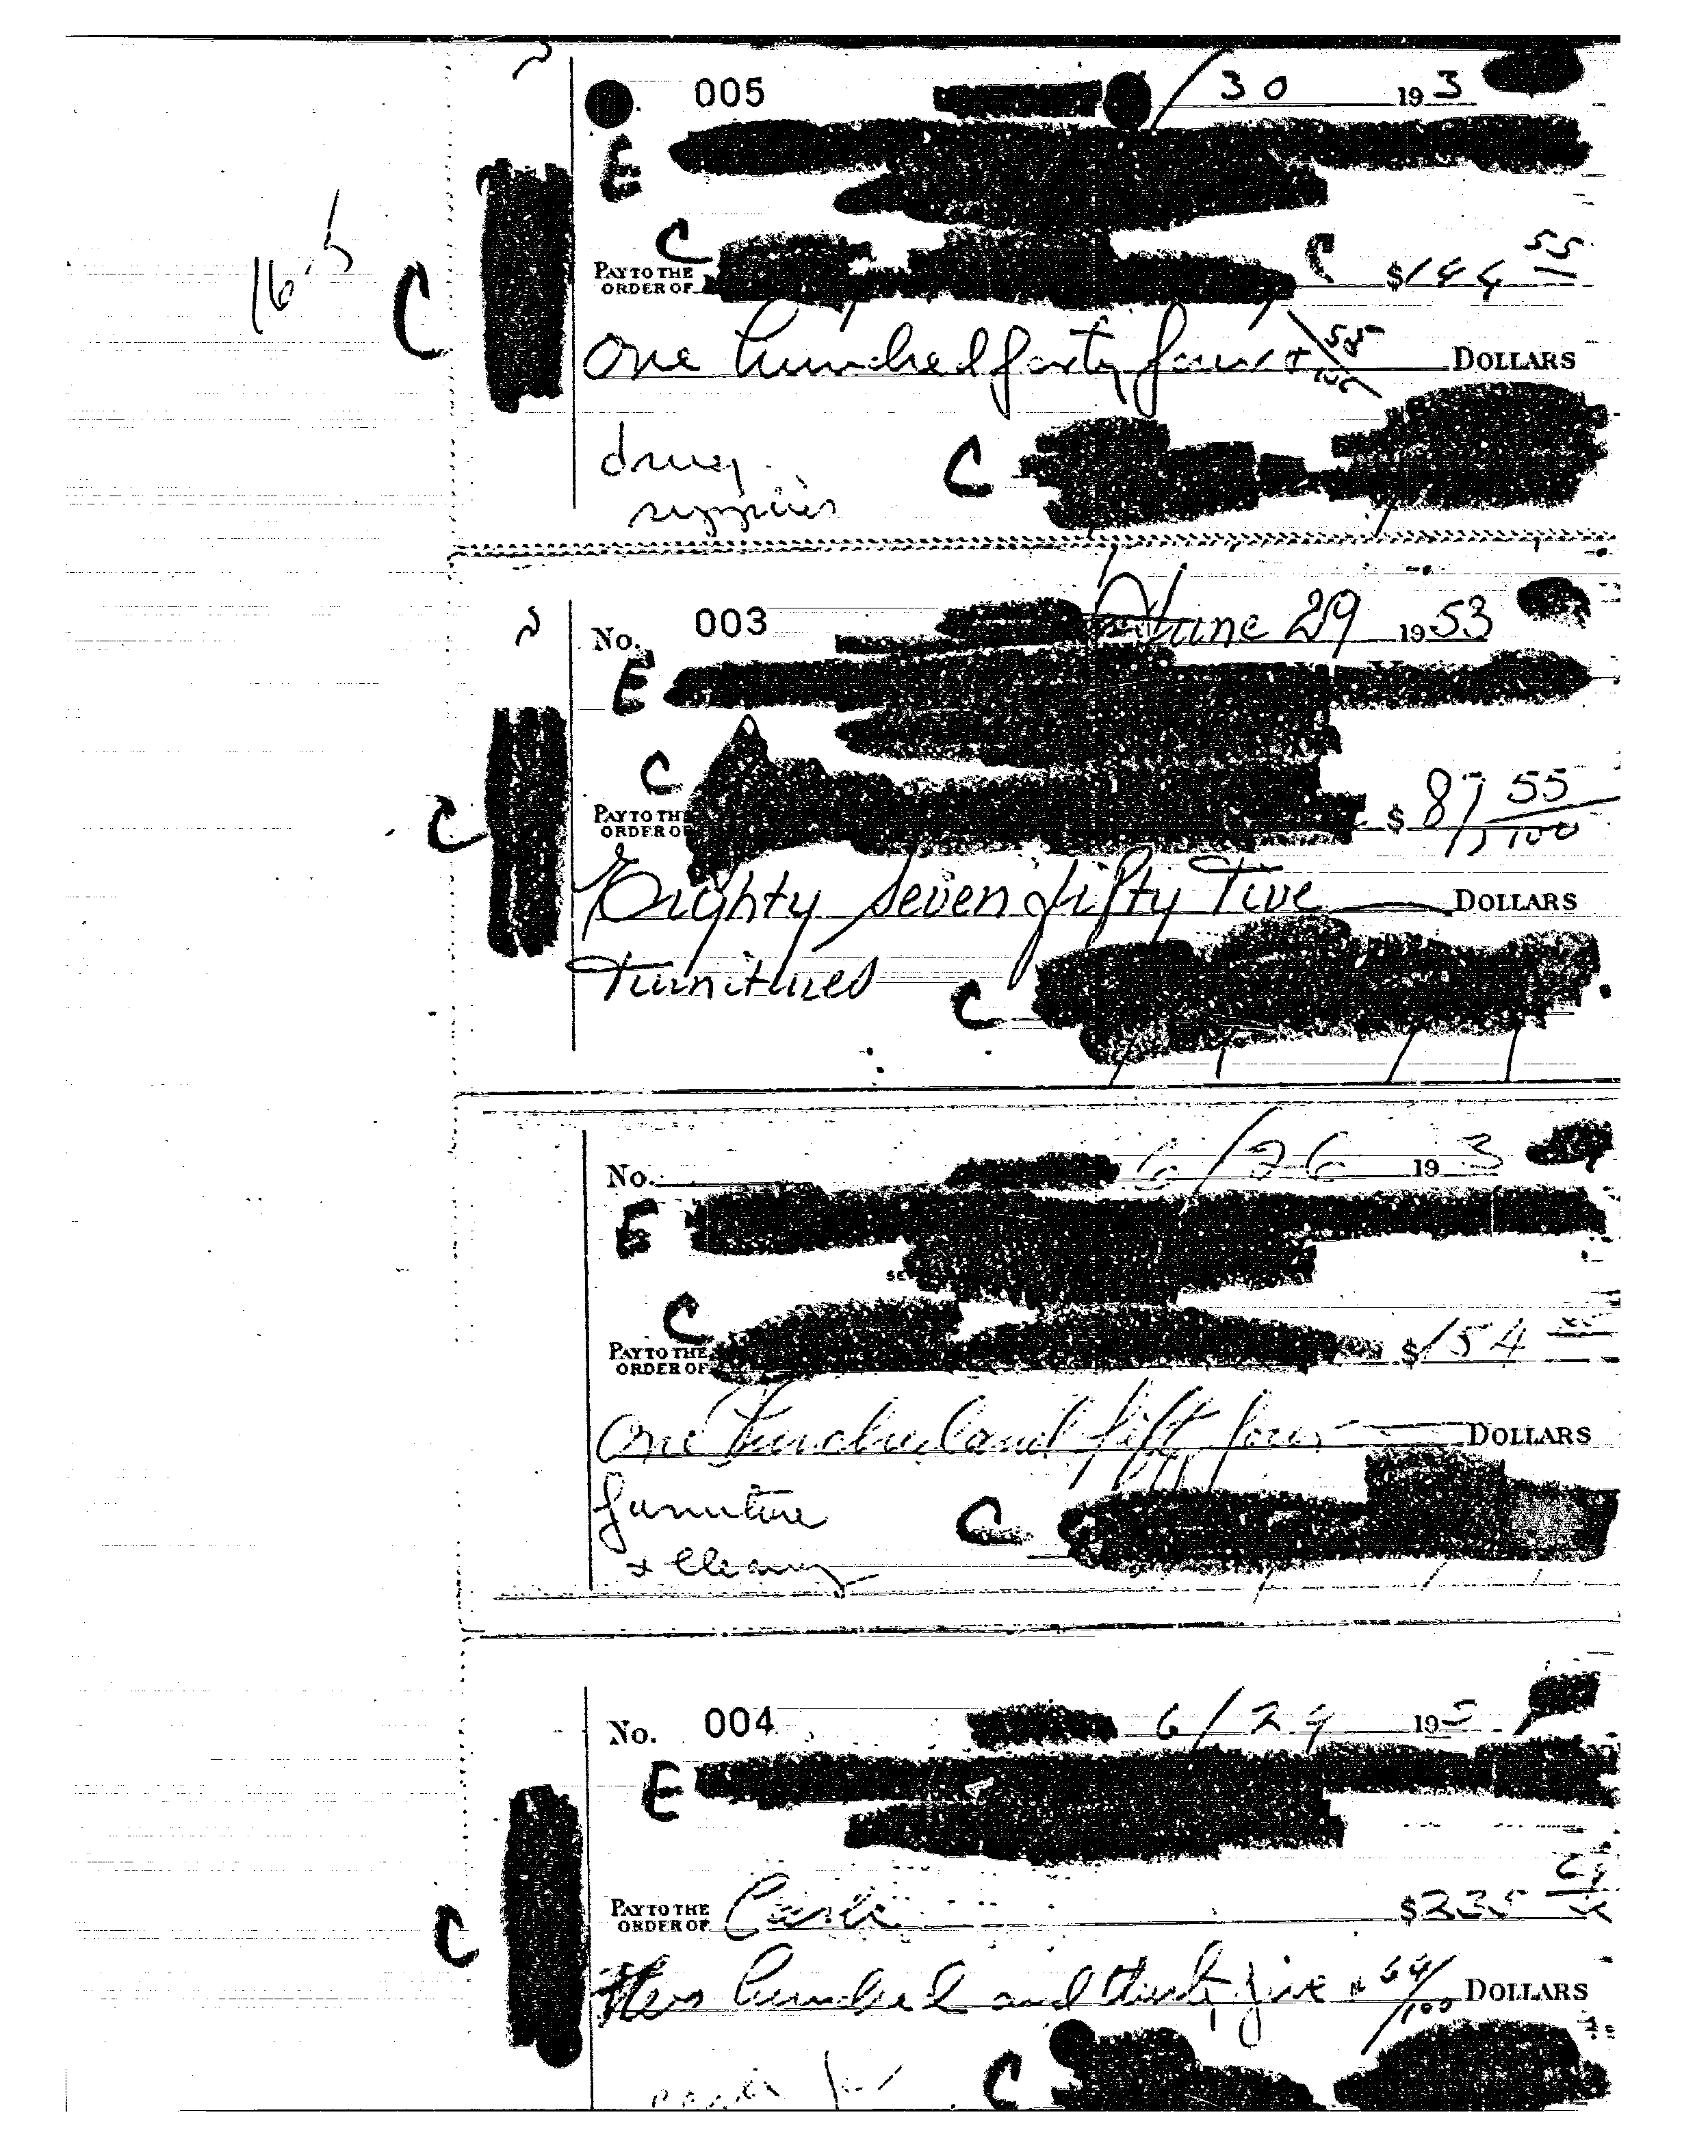 005 / 30 19 53
E
16.5
C
C
PAY TO THE ORDER OF C $144 55
One hundred forty four + 55/100 DOLLARS
drug
supplies
C
No. 003 June 29 19 53
E
C
C
PAY TO THE ORDER OF $ 87 55/100
Eighty seven fifty five DOLLARS
Furnitures
C
No. 6/26 19 3
E
C
PAY TO THE ORDER OF $154
One hundred and fifty four DOLLARS
furniture
C
+ cleaning
No. 004 6/29 195
E
C
PAY TO THE ORDER OF Cash $235
Two hundred and thirty five + 64/100 DOLLARS
C